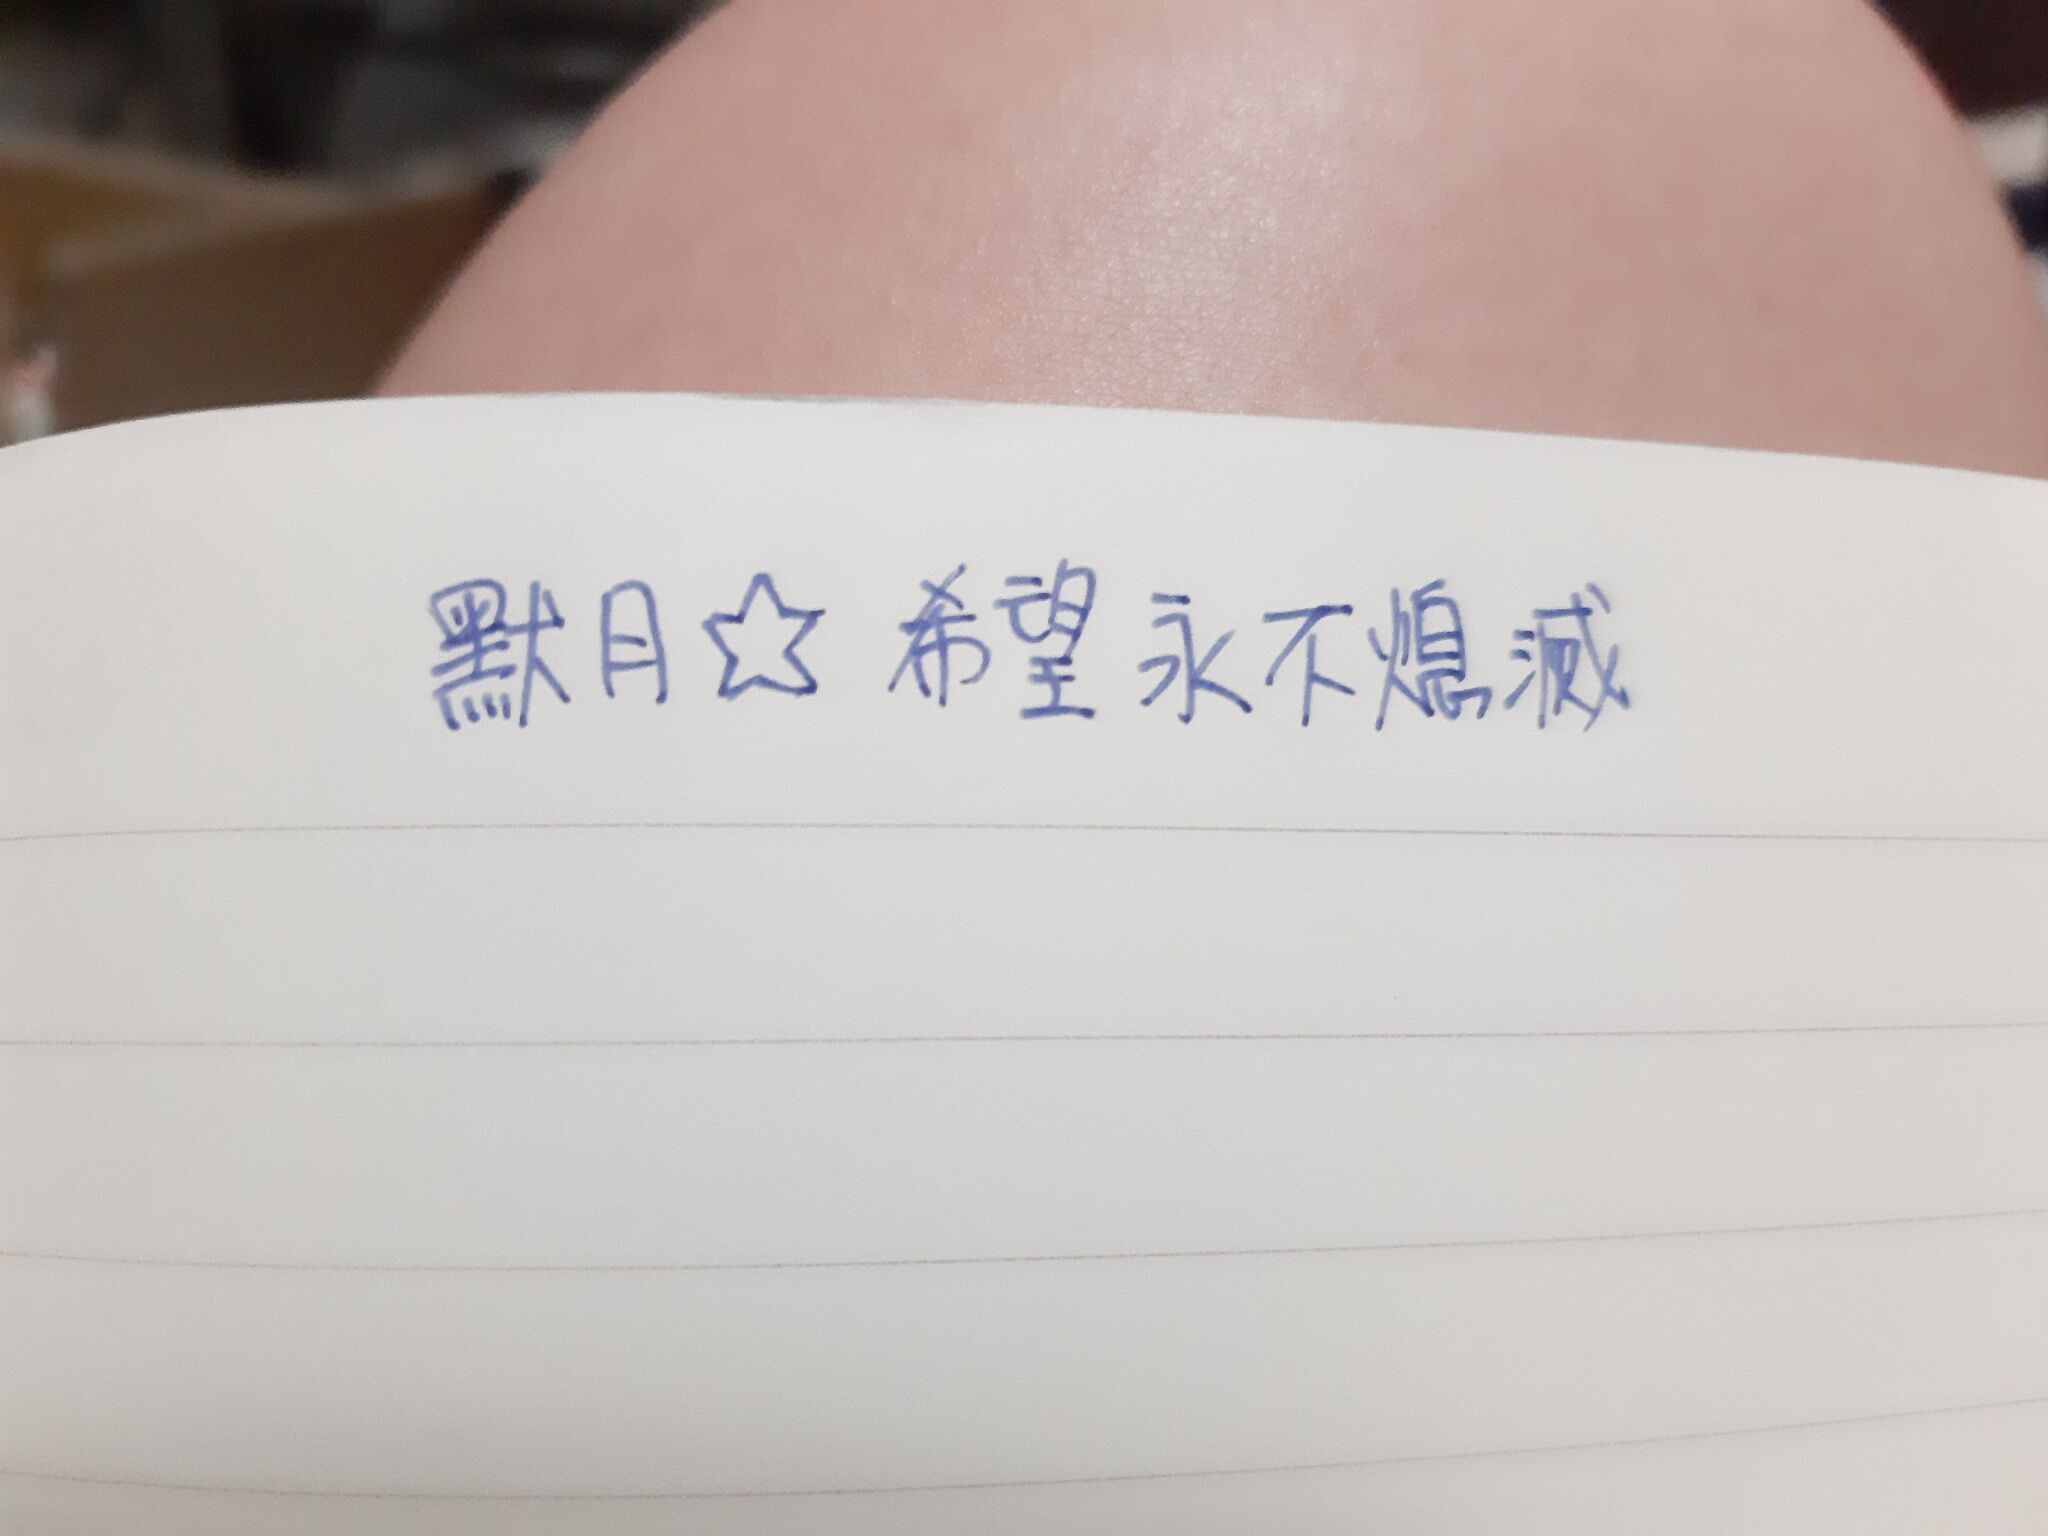 默月☆希望永不熄滅